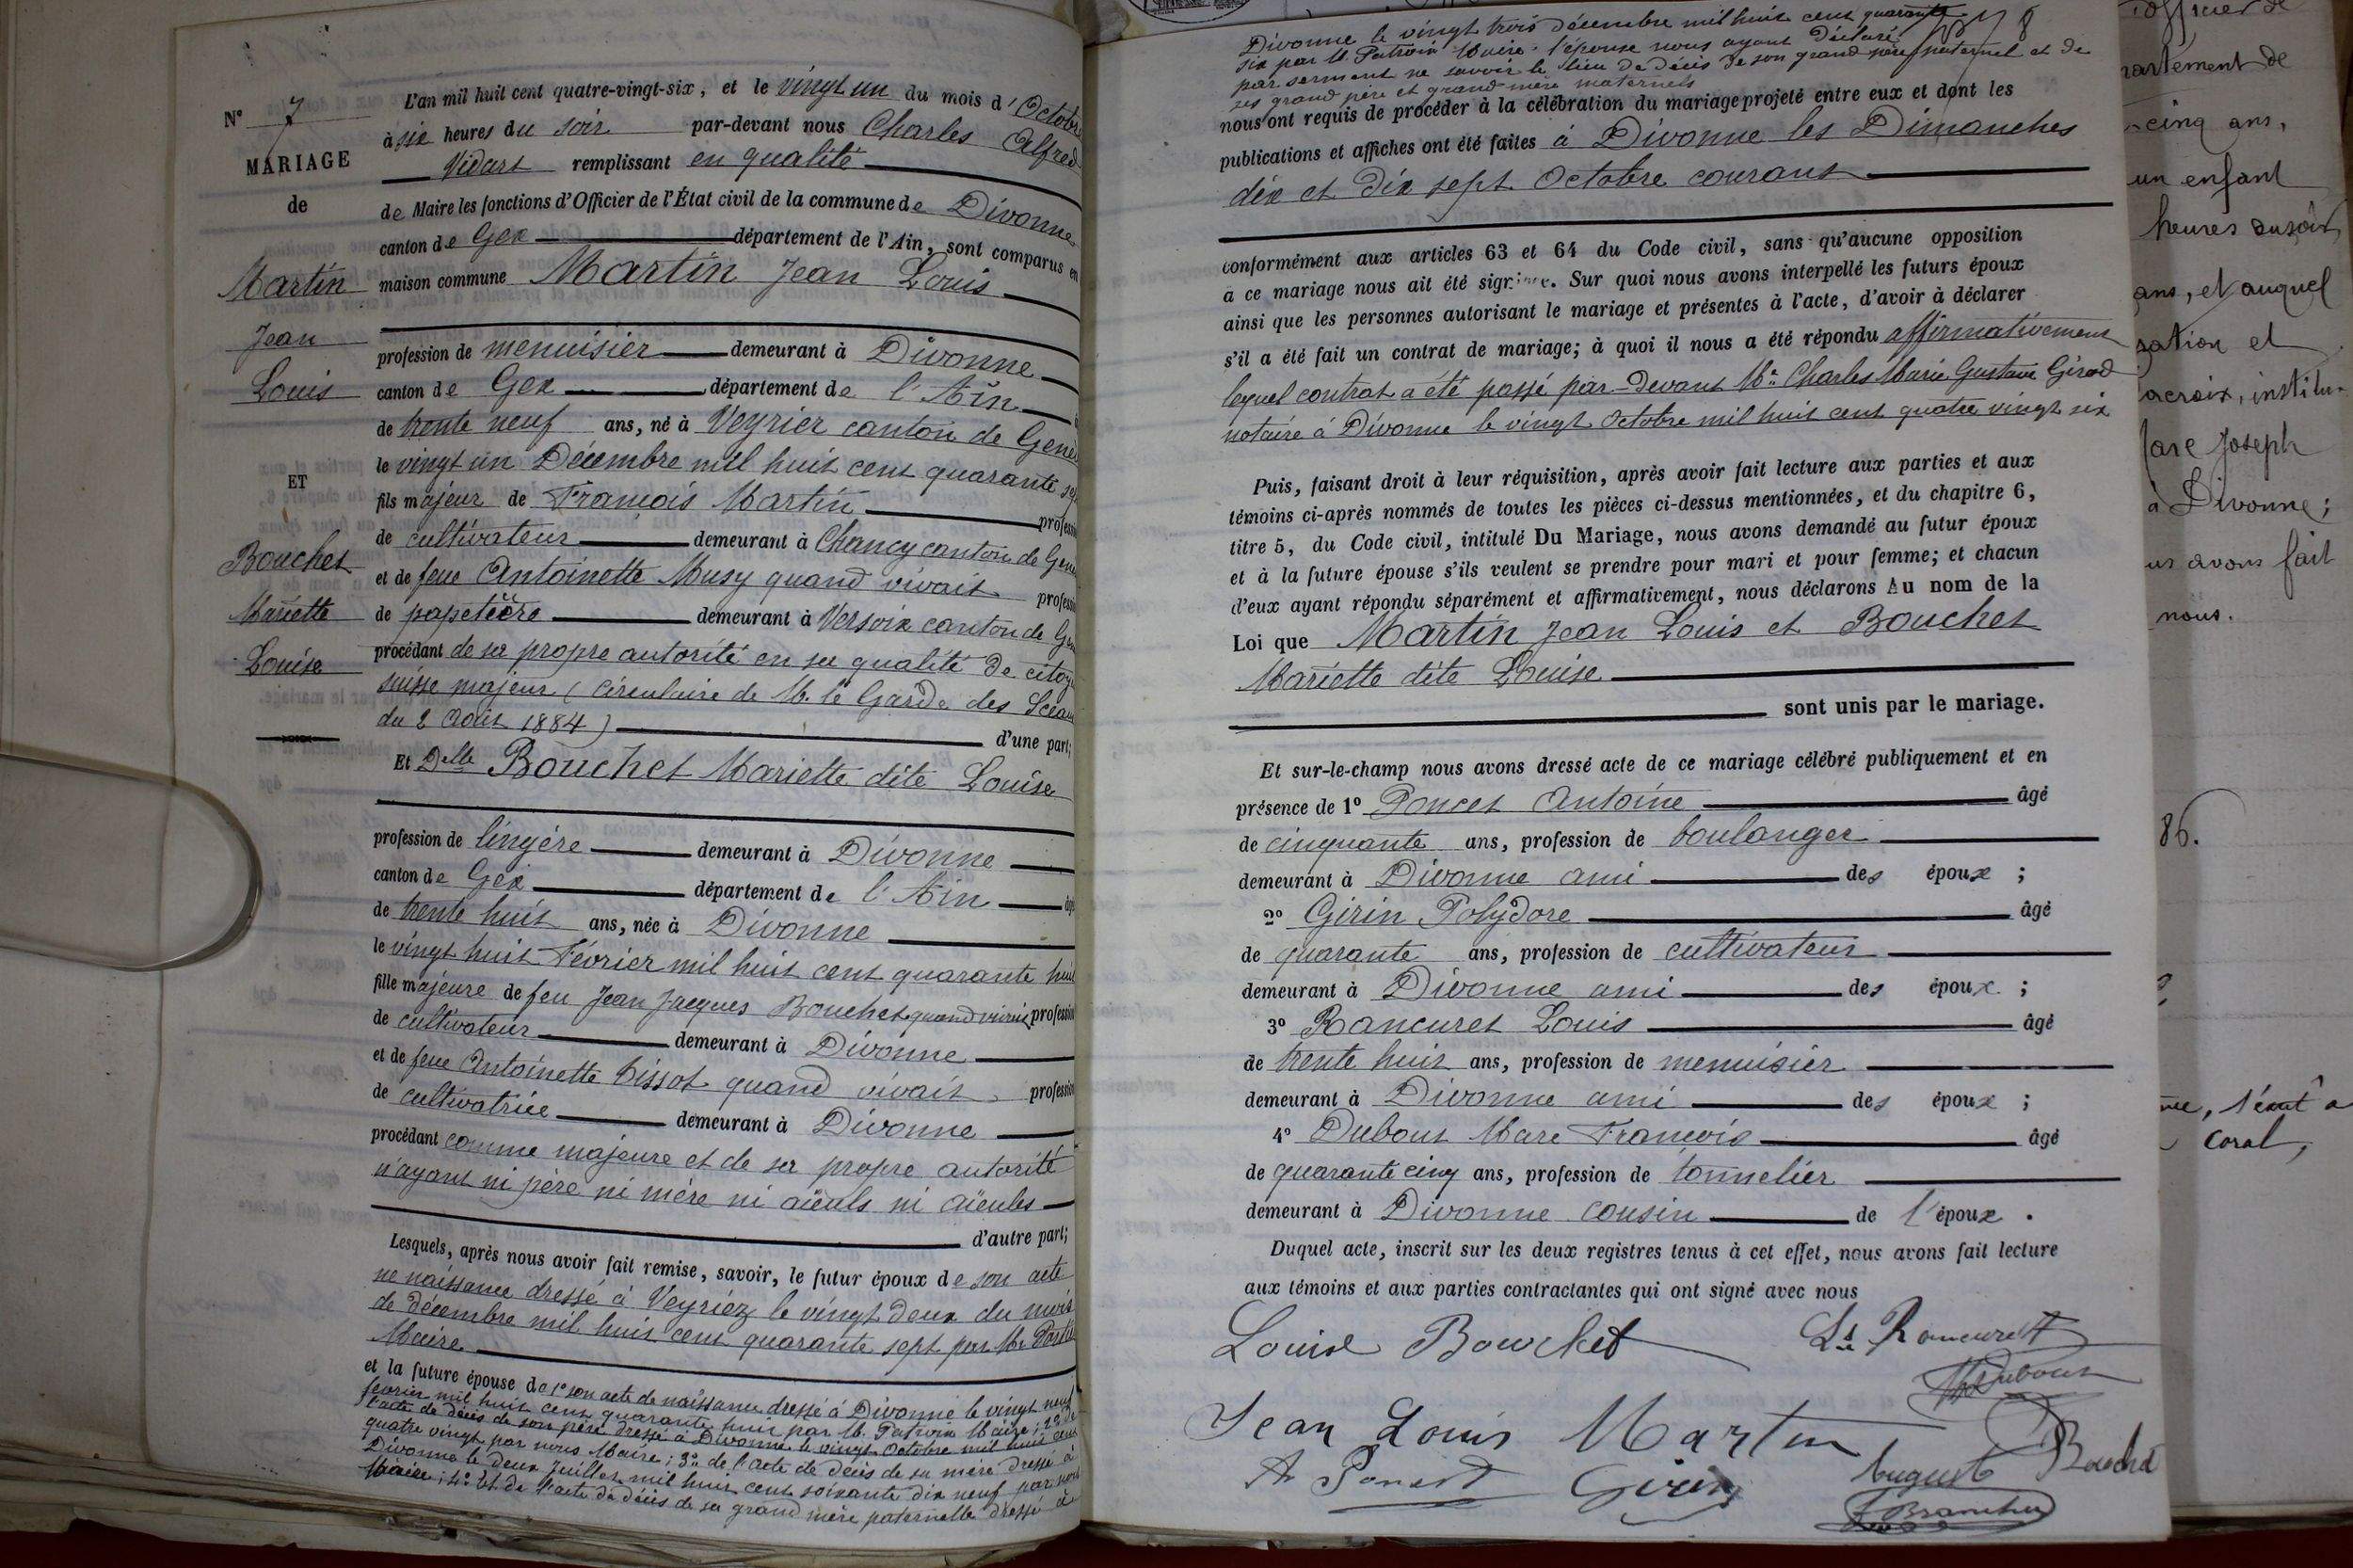 N° 7
MARIAGE
de
Martin
Jean
Louis
ET
Bouchet
Mariette
Louise
L'an mil huit cent quatre-vingt-six, et le vingt un du mois d'Octobre
à six heures du soir par-devant nous Charles Alfred
Vidart remplissant en qualité
de Maire les fonctions d'Officier de l'État civil de la commune de Divonne
canton de Gex département de l'Ain, sont comparus en
maison commune Martin Jean Louis
profession de menuisier demeurant à Divonne
canton de Gex département de l'Ain
de trente neuf ans, né à Veyrier canton de Genè
le vingt un Décembre mil huit cent quarante sept
fils majeur de François Martin profession
de cultivateur demeurant à Chancy canton de Genè
et de feue Antoinette Musy quand vivait profession
de papetière demeurant à Versoix canton de Ge
procédant de sa propre autorité en sa qualité de citoyen
suisse majeur (circulaire de M. le Garde des Sceaux
du 2 Août 1884) d'une part;
Et Delle Bouchet Mariette dite Louise
profession de lingère demeurant à Divonne
canton de Gex département de l'Ain âgée
de trente huit ans, née à Divonne
le vingt huit Février mil huit cent quarante huit
fille majeure de feu Jean Jacques Bouchet quand vivait profession
de cultivateur demeurant à Divonne
et de feue Antoinette Tissot quand vivait profession
de cultivatrice demeurant à Divonne
procédant comme majeure et de sa propre autorité
n'ayant ni père ni mère ni aïeuls ni aïeules
d'autre part;
Lesquels, après nous avoir fait remise, savoir, le futur époux de son acte
ne naissance dressé à Veyriez le vingt deux du mois
de décembre mil huit cent quarante sept par Mr
Maire
et la future épouse de 1° son acte de naissance dressé à Divonne le vingt neuf
février mil huit cent quarante huit par M. Patroix Maire; 2° de
l'acte de décès de son père dressé à Divonne le vingt Octobre mil huit cent
quatre vingt par nous Maire; 3° de l'acte de décès de sa mère dressé à
Divonne le deux Juillet mil huit cent soixante dix neuf par nous
Maire; 4° Et de l'acte de décès de sa grand mère paternelle dressé à
Divonne le vingt trois Décembre mil huit cent quarante
six par M. Patroix Maire. l'épouse nous ayant déclaré
par serment ne savoir le lieu de décès de son grand père paternel et de
ses grand père et grand-mère maternels
nous ont requis de procéder à la célébration du mariage projeté entre eux et dont les
publications et affiches ont été faites à Divonne les Dimanches
dix et dix sept Octobre courant
conformément aux articles 63 et 64 du Code civil, sans qu'aucune opposition
à ce mariage nous ait été signifiée. Sur quoi nous avons interpellé les futurs époux
ainsi que les personnes autorisant le mariage et présentes à l'acte, d'avoir à déclarer
s'il a été fait un contrat de mariage; à quoi il nous a été répondu affirmativement
lequel contrat a été passé par-devant Me Charles Marie Gustave Girod
notaire à Divonne le vingt Octobre mil huit cent quatre vingt six
Puis, faisant droit à leur réquisition, après avoir fait lecture aux parties et aux
témoins ci-après nommés de toutes les pièces ci-dessus mentionnées, et du chapitre 6,
titre 5, du Code civil, intitulé Du Mariage, nous avons demandé au futur époux
et à la future épouse s'ils veulent se prendre pour mari et pour femme; et chacun
d'eux ayant répondu séparément et affirmativement, nous déclarons Au nom de la
Loi que Martin Jean Louis et Bouchet
Mariette dite Louise
sont unis par le mariage.
Et sur-le-champ nous avons dressé acte de ce mariage célébré publiquement et en
présence de 1° Poncet Antoine âgé
de cinquante ans, profession de boulanger
demeurant à Divonne ami des époux ;
2° Girin Polydore âgé
de quarante ans, profession de cultivateur
demeurant à Divonne ami des époux ;
3° Rancuret Louis âgé
de trente huit ans, profession de menuisier
demeurant à Divonne ami des époux ;
4° Dubout Marc François âgé
de quarante cinq ans, profession de tonnelier
demeurant à Divonne cousin de l'époux .
Duquel acte, inscrit sur les deux registres tenus à cet effet, nous avons fait lecture
aux témoins et aux parties contractantes qui ont signé avec nous
Louise Bouchet
Ls Rancuret
Dubout
Jean Louis Martin
A Poncet Girin
August Bouchet
partement de
cinq ans,
un enfant
heures du soir
ans, et auquel
sation et
acroix, institu-
Marc Joseph
à Divonne;
us avons fait
nous.
86.
Coral,